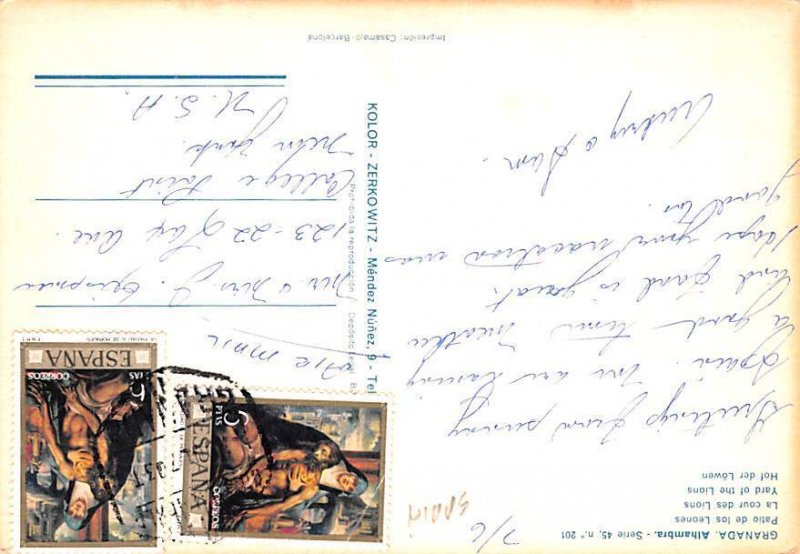 GRANADA. Alhambra. - Serie 45, n.º 201
Patio de los Leones
La cour des Lions
Yard of the Lions
Hof der Löwen
7/6
SPAIN
Greetings from sunny
Spain. We are having
a good time. Weather
and food is great.
Hope your vacation was
good too.
&
AIR MAIL
Mr & Mrs J.
123-22 Ave.
College Point
New York
U.S.A.
KOLOR - ZERKOWITZ - Méndez Núñez, 9 - Tel
Prohibida la reproducción Depósito Legal. B
Impresión: Casamajó-Barcelona
ESPAÑA
CORREOS
5
PTAS
ESPAÑA
CORREOS
5
PTAS